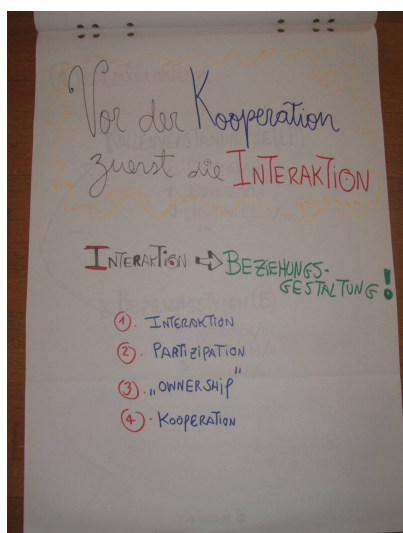 Vor der Kooperation
zuerst die INTERAKTION
INTERAKTION ⇨ BEZIEHUNGS-
GESTALTUNG!
1. INTERAKTION
2. PARTIZIPATION
3. „OWNERSHIP"
4. KOOPERATION